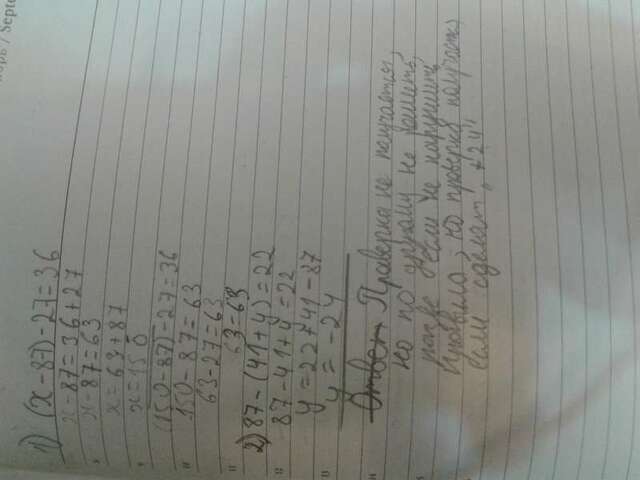 1) (x-87)-27=36
x-87=36+27
x-87=63
x=63+87
x=150
(150-87)-27=36
150-87=63
63-27=63
63=63
2) 87-(41+y)=22
87-41+y=22
y=22+41-87
y=-24
Ответ Проверка не получается,
но по другому не решить,
разве если не нарушить
правила, но проверка получается,
если сделать "+24"